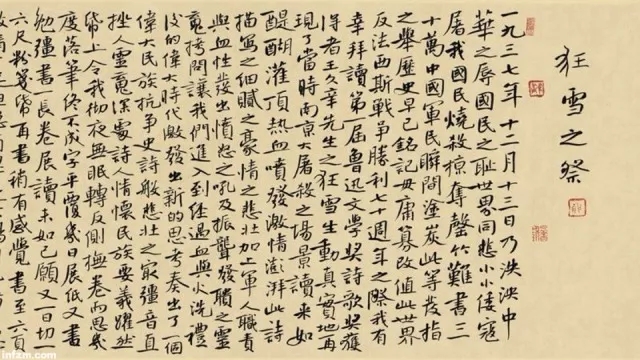 狂雪之祭
一九三七年十二月十三日乃泱泱中
華之辱國民之耻世界同悲小小倭寇
屠我國民燒殺掠奪罄竹難書三
十萬中國軍民瞬間塗炭此等發指
之舉歷史早已銘記毋庸篡改值此世界
反法西斯戰爭勝利七十週年之際我有
幸拜讀第一届鲁迅文學奬詩歌奬獲
得者王久辛先生之狂雪生動真實地再
現了當時南京大屠殺之場景讀来如
醍醐灌頂熱血噴發激情澎湃此詩
描寫之細膩之豪情之悲壯加上軍人職責
與血性發出憤怒之吼及振聾發聵之靈
魂拷問讓我們進入到經過血與火洗禮
後的偉大時代激發出新的思考奏出了一個
偉大民族抗爭史詩般悲壯之最彊音直
挫人靈魂深處詩人情懷民族要義躍然
帋上令我徹夜無眠轉反側撫卷而思幾
度落筆終不成字平覆幾日展帋又書
勉彊書一長卷展讀未如己願又日切一
六尺對箋帋再書稍有感覺書至六頁
infam.com